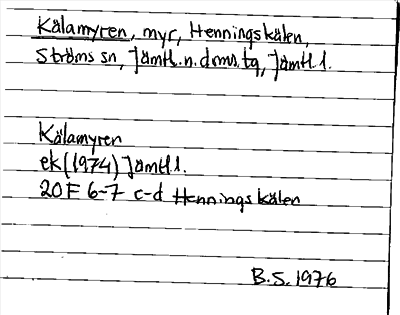 Kälamyren, myr, Henningskälen,
Ströms sn, Jämtl. n. dms. tg, Jämtl. l.
Kälamyren
ek (1974) Jämtl. l.
20F 6-7 c-d Henningskälen
B.S. 1976